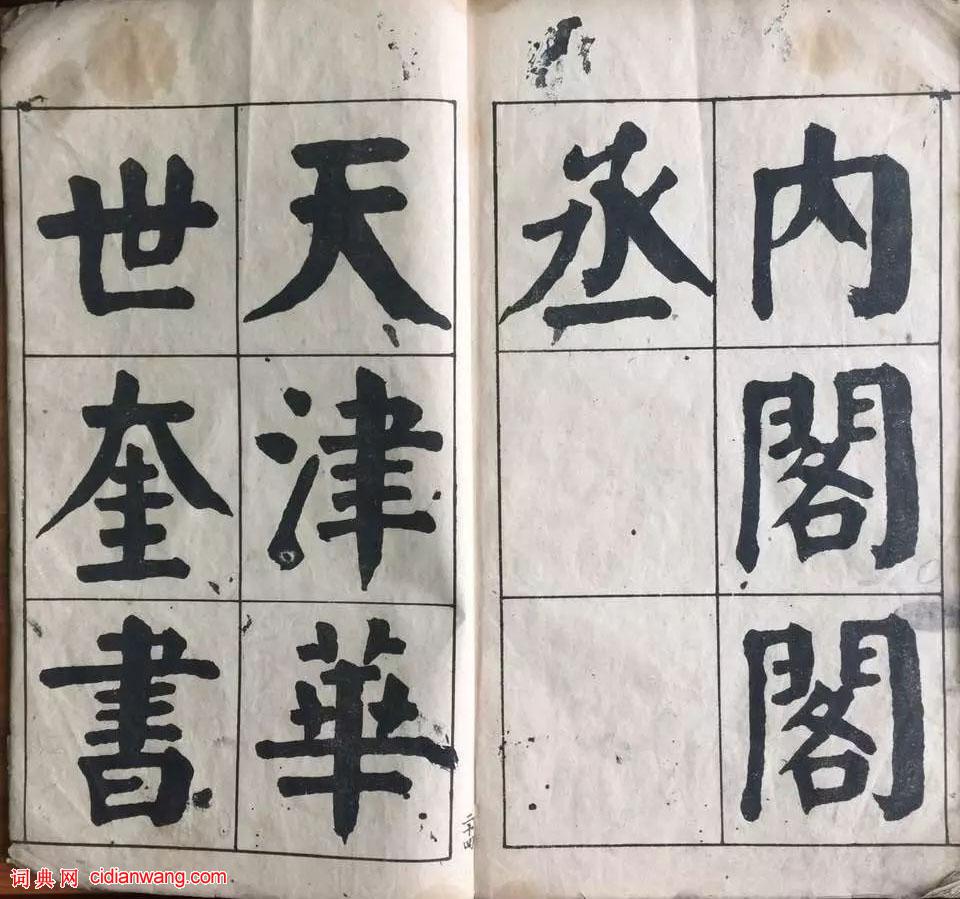 內閣閣
丞
天津華
世奎書
二十四
词典网 cidianwang.com